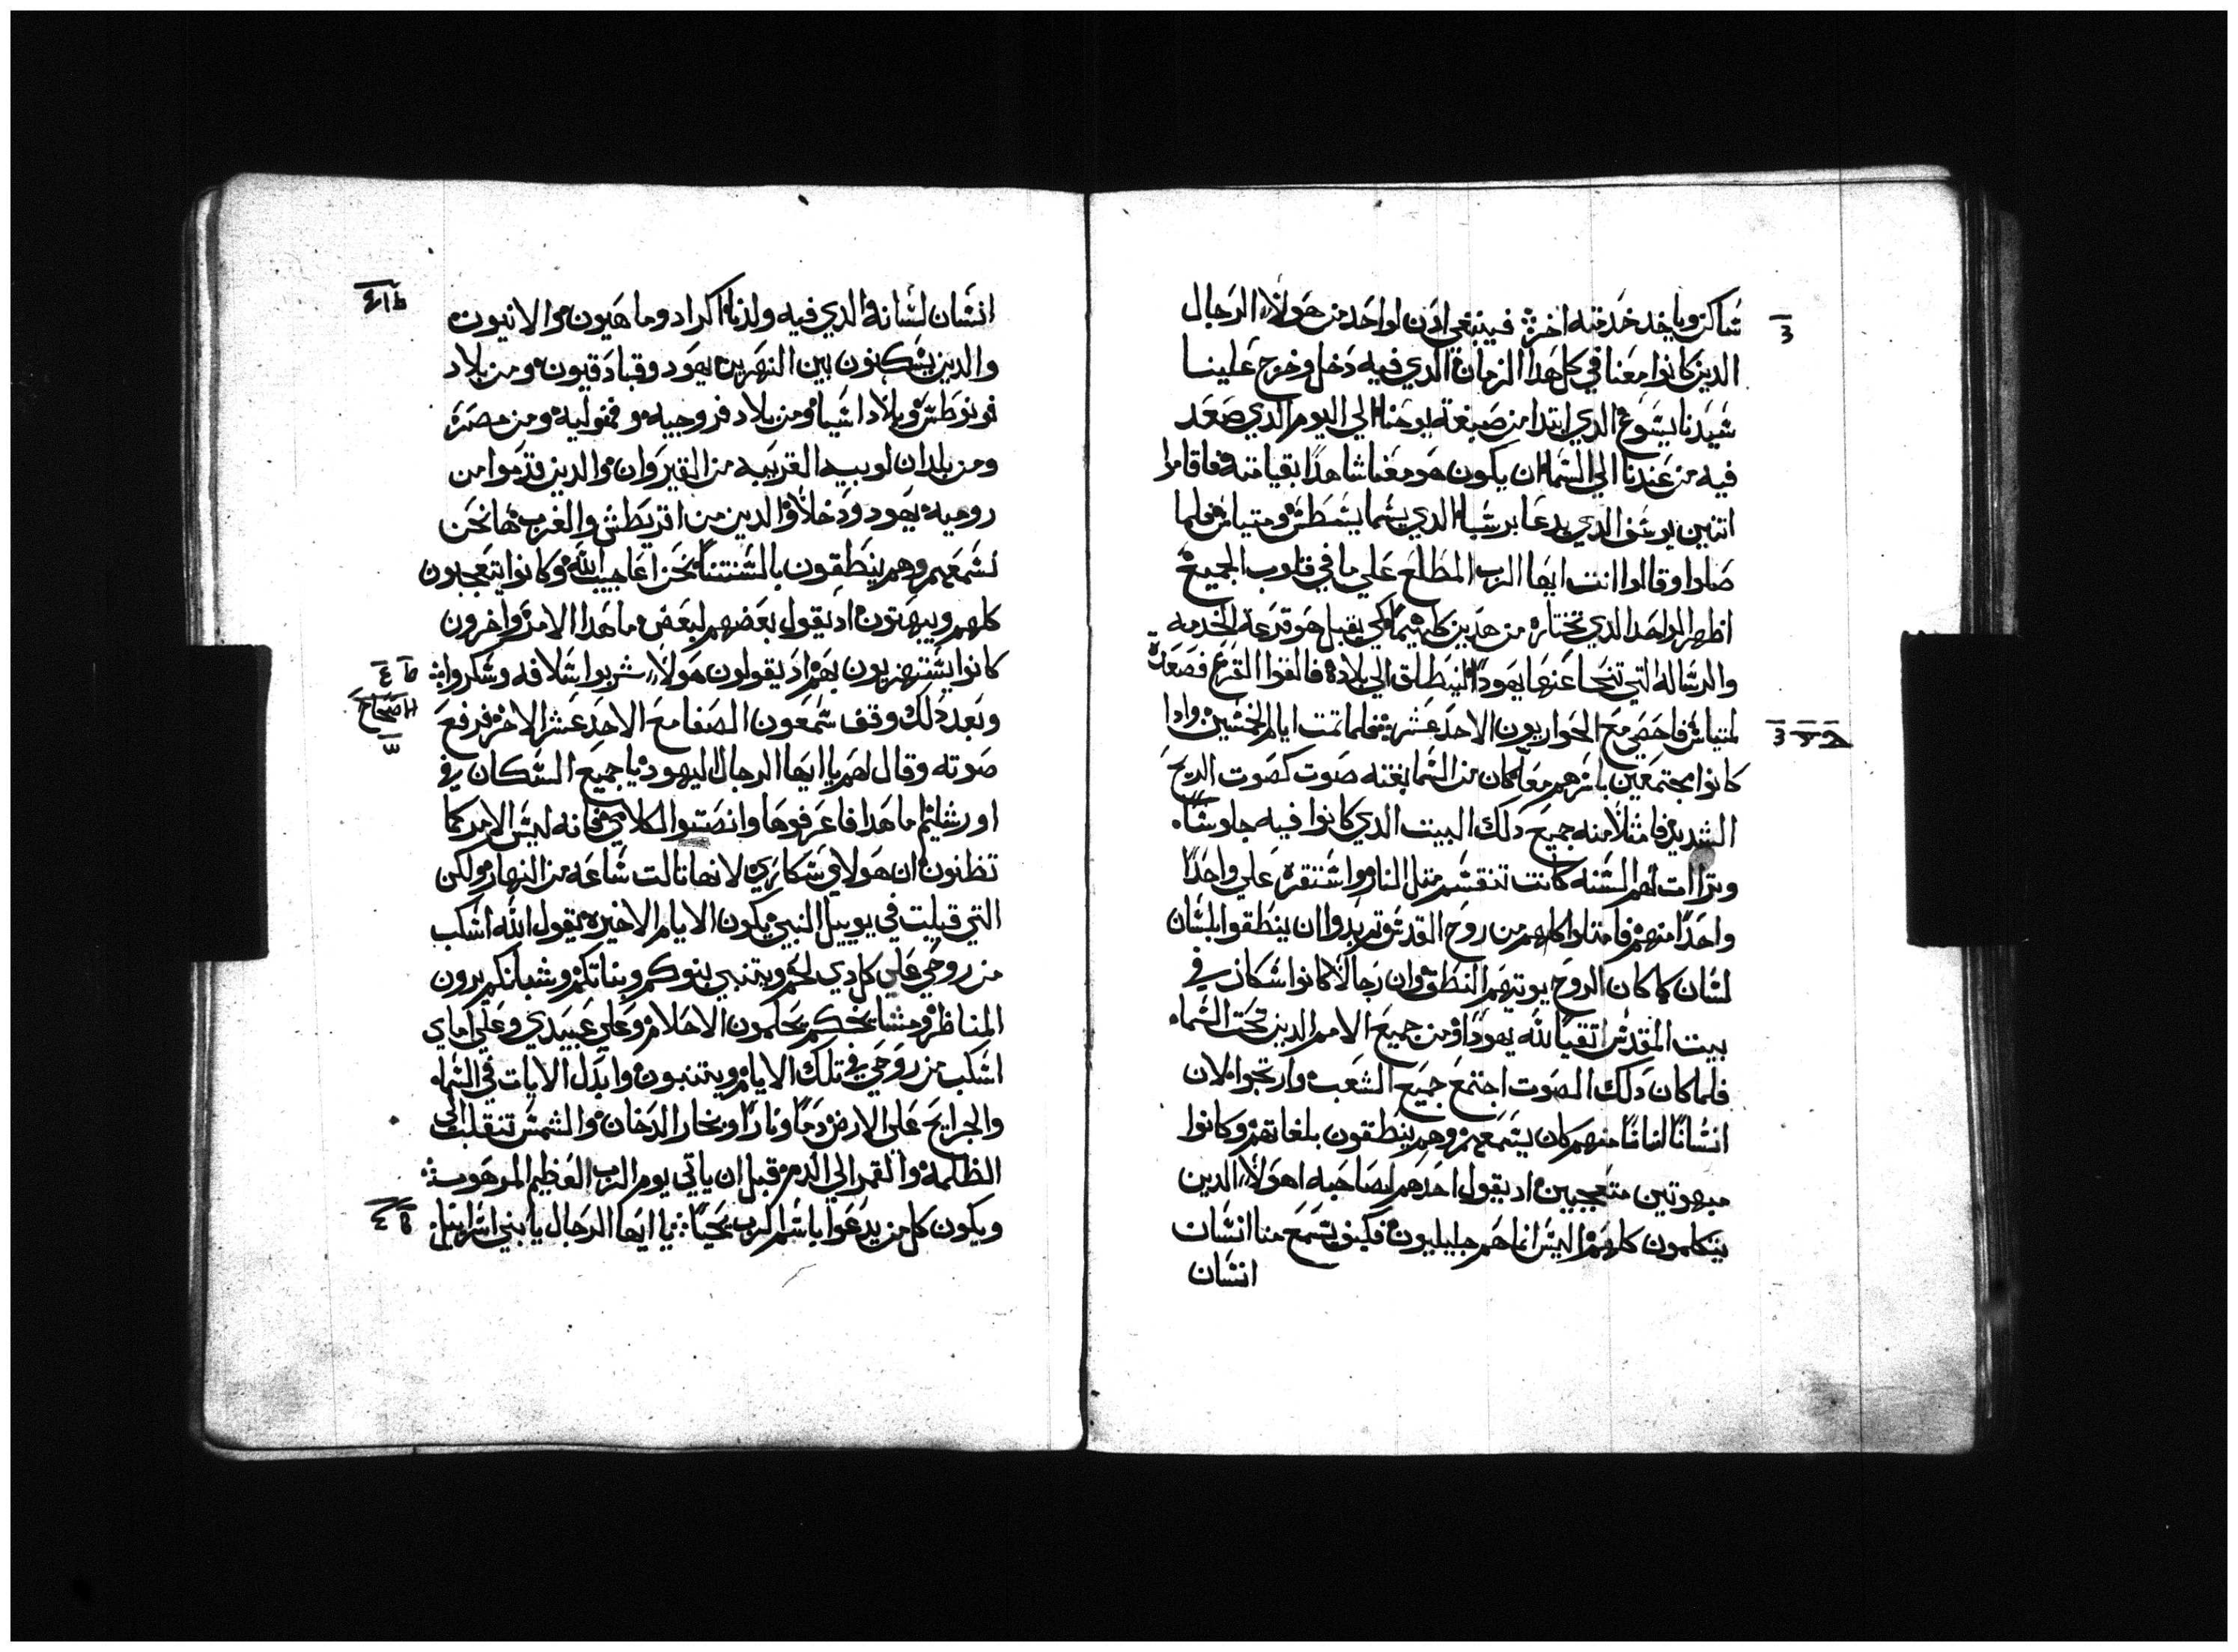 ساكن وياخد خدمته اخر فينبغي ادن لواحد من هولاء الرجال
الدين كانوا معنا في كل هدا الزمان الدي فيه دخل وخرج علينا
سيدنا يسوع الدي ابتدا من صبغة يوحنا الي اليوم الدي صعد
فيه من عندنا الي السما ان يكون هو معنا شاهدا بقيامته فاقاموا
اتنين يوسف الدي يدعا برسبا الدي يسما يسطس ومتياس فلما
صلوا وقالوا انت ايها الرب المطلع علي ما في قلوب الجميع
اظهر الواحد الدي تختاره من هدين كليهما لكي يقبل هو قرعة الخدمه
والرساله التي تنحا عنها يهودا لينطلق الي بلاده فالقوا القرع فصعدت
لمتياس فاحصي مع الحواريون الاحد عشر فلما تمت ايام الخمسين وادا
كانوا مجتمعين باسرهم معا كان من السما بغته صوت كصوت الريح
الشديد فامتلا منه جميع دلك البيت الدي كانوا فيه جلوسا
وتراات لهم السنه كانت تنقسم متل النار واستقره علي واحدا
واحدا منهم فامتلوا كلهم من روح القدس تم بدوا ان ينطقوا بلسان
لسان كما كان الروح يوتيهم النطق وان رجالا كانوا سكان في
بيت المقدس اتقيا لله يهودا من جميع الامم الدين تحت السماء
فلما كان دلك الصوت اجتمع جميع الشعب وارتجوا لان
انسانا انسانا منهم كان يسمعهم وهم ينطقون بلغاتهم وكانوا
مبهوتين متعجبين اد يقول احدهم لصاحبه اهولاء الدين
يتكلمون كلهم اليس انما هم جليليون فكيف يسمع منا انسان
انسان
انسان لسانه الدي فيه ولدنا اكراد وماهيون والانيون
والدين يسكنون بين النهرين يهود وقبادقيون ومن بلاد
فونوطس وبلاد اسيا ومن بلاد فروجيه وفمفوليه ومن مصر
ومن بلدان لوبيه القريبه من القيروان والدين قدموا من
روميه يهود ودخلا والدين من اقريطش والغرب ها نحن
نسمعهم وهم ينطقون بالسنتنا نحن اعاجيب الله وكانوا يتعجبون
كلهم ويبهتون اد يقول بعضهم لبعض ما هدا الامر واخرون
كانوا يستهزيون بهم اد يقولون هولاء شربوا سلافه وسكروا
وبعد دلك وقف سمعون الصفا مع الاحد عشر الاخر فرفع
اصحاح
صوته وقال لهم يا ايها الرجال اليهود يا جميع السكان في
اورشليم ما هدا فاعرفوها وانصتوا لكلامي فانه ليس الامر كما
تظنون ان هولاي سكاري لانها تالت ساعه من النهار ولكن
التي قيلت في يوييل النبي يكون الايام الاخيره يقول الله اسكب
من روحي علي كل دي لحم ويتنبي بنوكم وبناتكم وشبانكم يرون
المناظر ومشايخكم يحلمون الاحلام وعلي عبيدي وعلي اماي
اسكب من روحي في تلك الايام ويتنبون وابدل الايات في السماء
والجرايح علي الارض دما ونارا وبخار الدخان والشمس تنقلب الي
الظلمه والقمر الي الدم قبل ان ياتي يوم الرب العظيم المرهوب
ويكون كل من يدعوا باسم الرب يحيا يا ايها الرجال يا بني اسراييل